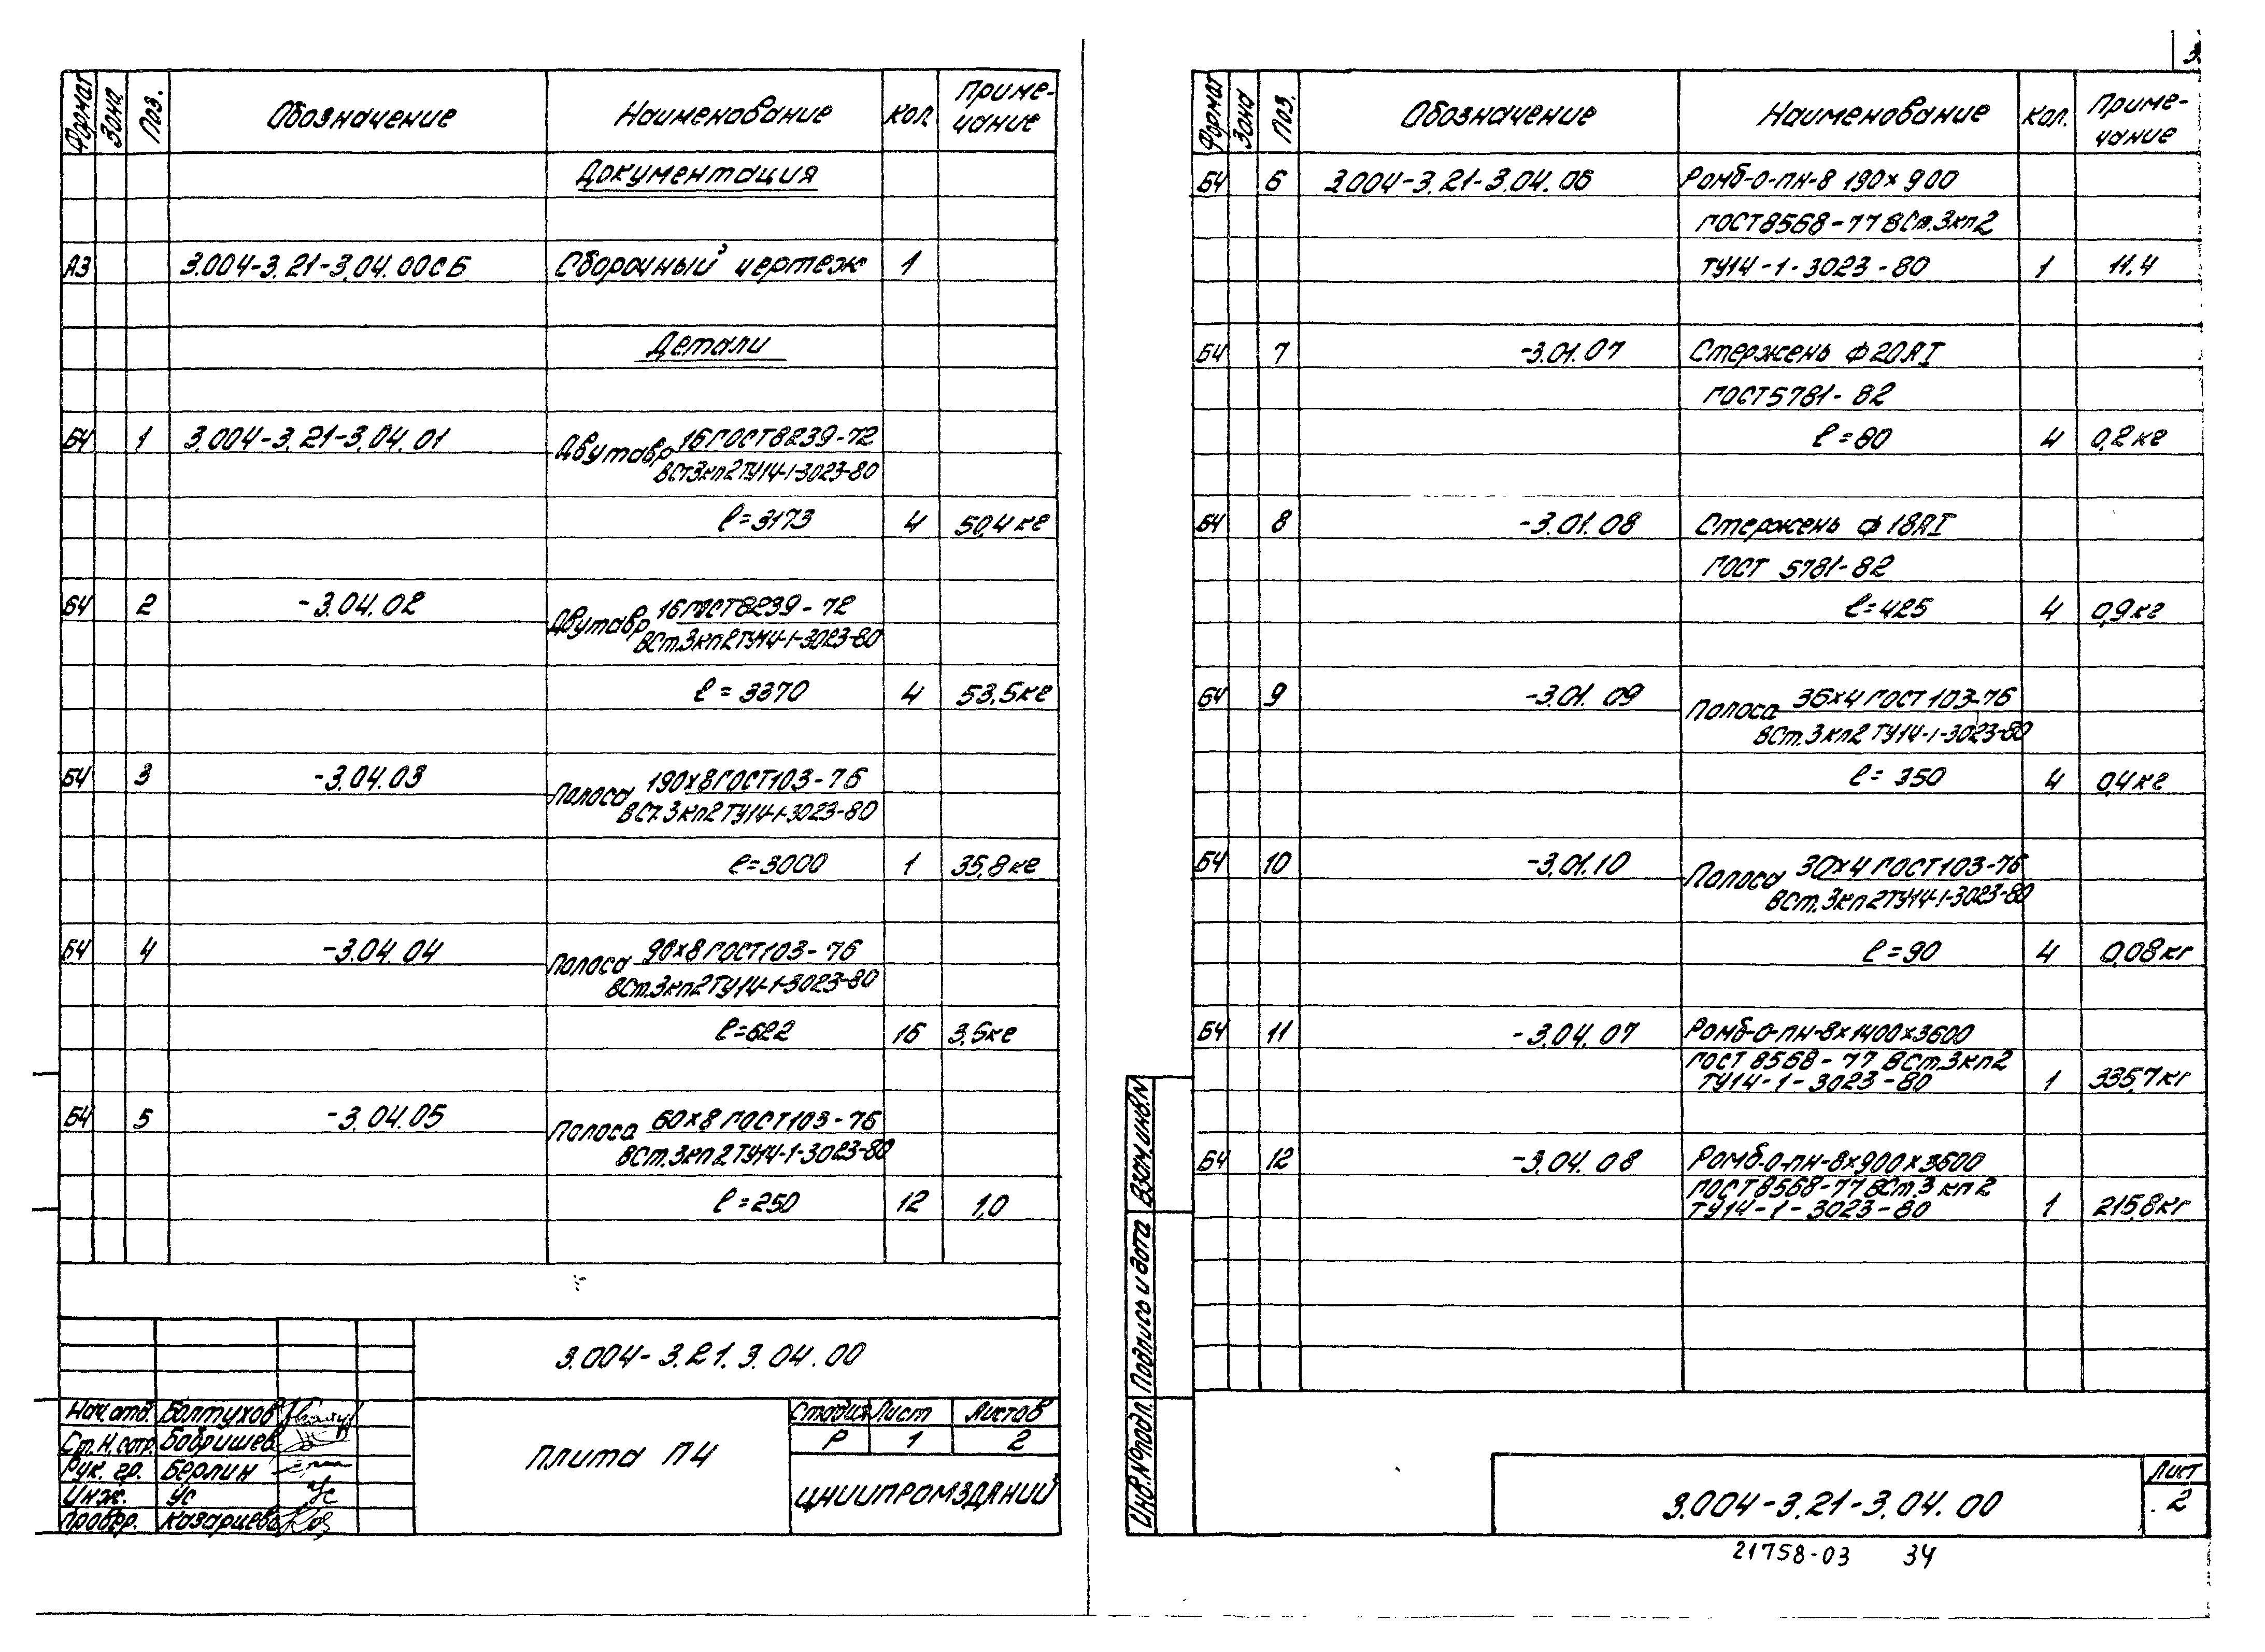 Формат Зона Поз. Обозначение Наименование Кол. Приме-
чание
Документация
А3 3.004-3.21-3.04.00СБ Сборочный чертеж 1
Детали
БЧ 1 3.004-3.21-3.04.01 Двутавр 16 ГОСТ 8239-72
ВСт3кп2 ТУ14-1-3023-80
ℓ=3173 4 50,4 кг
БЧ 2 -3.04.02 Двутавр 16 ГОСТ 8239-72
ВСт.3кп2 ТУ14-1-3023-80
ℓ=3370 4 53,5 кг
БЧ 3 -3.04.03 Полоса 190×8 ГОСТ 103-76
ВСт.3кп2 ТУ14-1-3023-80
ℓ=3000 1 35,8 кг
БЧ 4 -3.04.04 Полоса 90×8 ГОСТ 103-76
ВСт.3кп2 ТУ14-1-3023-80
ℓ=622 16 3,5 кг
БЧ 5 -3.04.05 Полоса 60×8 ГОСТ 103-76
ВСт.3кп2 ТУ14-1-3023-80
ℓ=250 12 1,0
3.004-3.21.3.04.00
Нач.отд. Болтухов
Ст.н.сотр. Бобришев
Рук. гр. Берлин
Инж. Ус
Провер. Казарцева
Плита П4
Стадия Лист Листов
Р 1 2
ЦНИИПРОМЗДАНИЙ
Формат Зона Поз. Обозначение Наименование Кол. Приме-
чание
БЧ 6 3.004-3.21-3.04.06 Ромб-О-ПН-8 190×900
ГОСТ 8568-77 ВСт.3кп2
ТУ14-1-3023-80 1 11,4
БЧ 7 -3.01.07 Стержень ф20АI
ГОСТ 5781-82
ℓ=80 4 0,2 кг
БЧ 8 -3.01.08 Стержень ф18АI
ГОСТ 5781-82
ℓ=425 4 0,9 кг
БЧ 9 -3.01.09 Полоса 36×4 ГОСТ 103-76
ВСт.3кп2 ТУ14-1-3023-80
ℓ=350 4 0,4 кг
БЧ 10 -3.01.10 Полоса 30×4 ГОСТ 103-76
ВСт.3кп2 ТУ14-1-3023-80
ℓ=90 4 0,08 кг
БЧ 11 -3.04.07 Ромб-О-ПН-8×1400×3600
ГОСТ 8568-77 ВСт.3кп2
ТУ14-1-3023-80 1 335,7 кг
БЧ 12 -3.04.08 Ромб-О-ПН-8×900×3600
ГОСТ 8568-77 ВСт.3кп2
ТУ14-1-3023-80 1 215,8 кг
Инв.№подл. Подпись и дата Взам.инв.N
3.004-3.21-3.04.00
Лист
2
21758-03 34